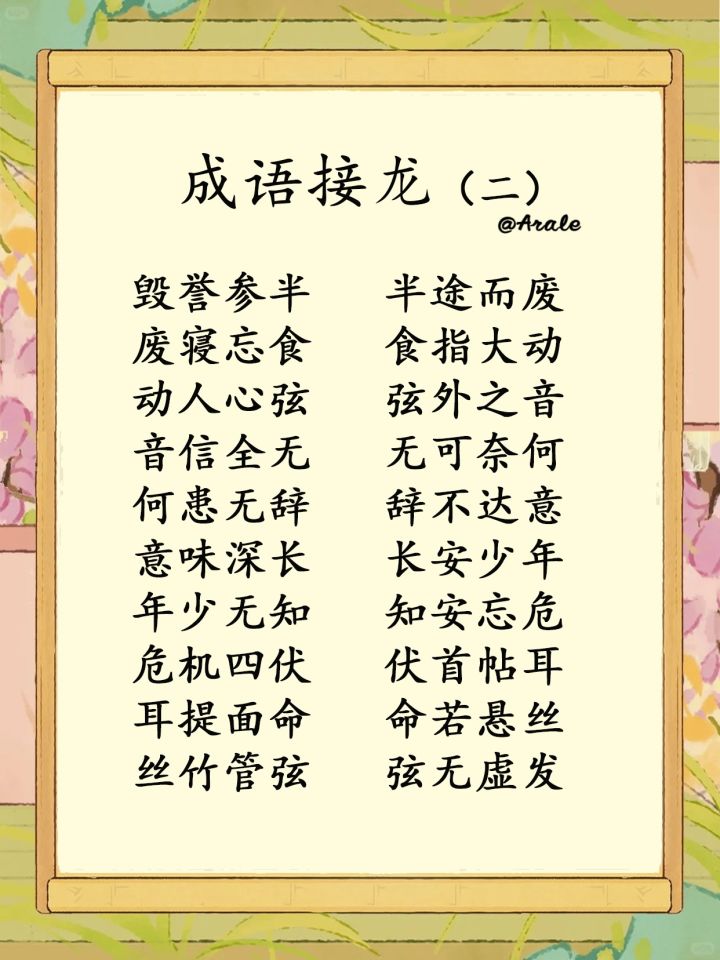 成语接龙（二）
@Arale
毁誉参半 半途而废
废寝忘食 食指大动
动人心弦 弦外之音
音信全无 无可奈何
何患无辞 辞不达意
意味深长 长安少年
年少无知 知安忘危
危机四伏 伏首帖耳
耳提面命 命若悬丝
丝竹管弦 弦无虚发